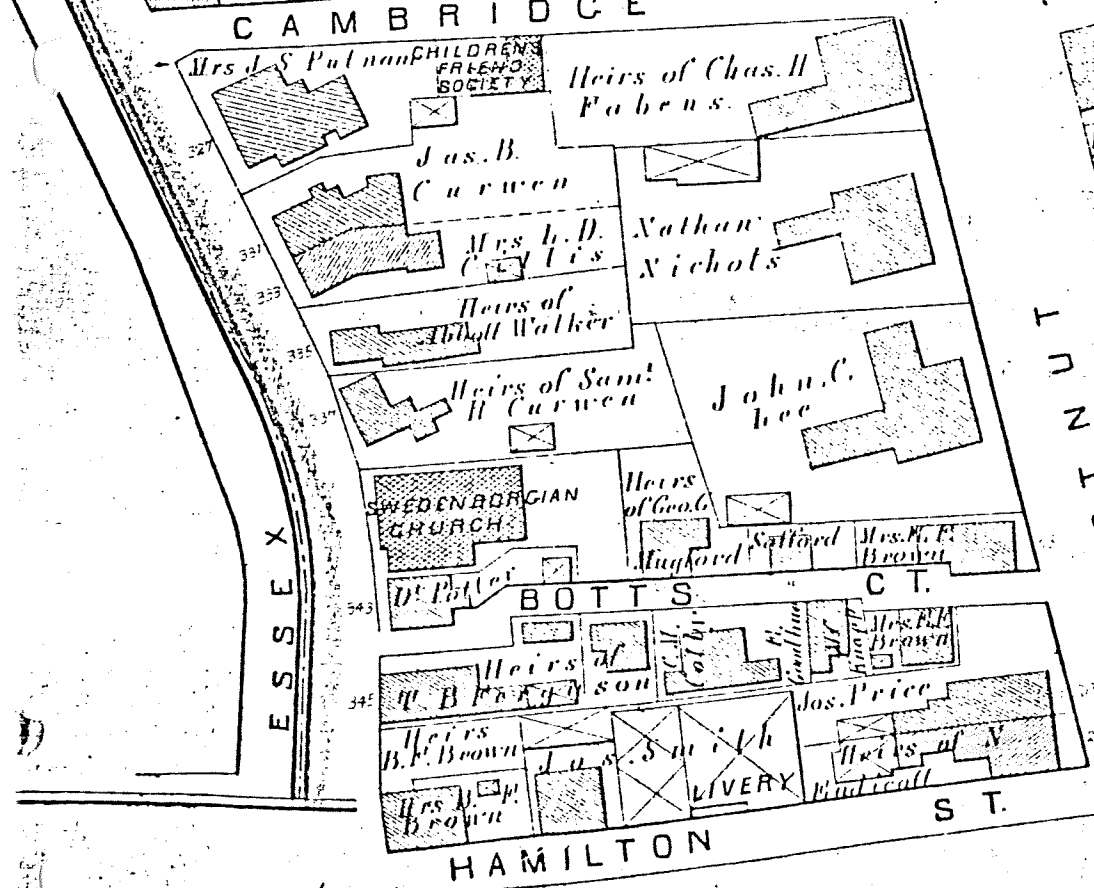 CAMBRIDGE
Mrs J. S Putnam
CHILDRENS
FRIEND
SOCIETY
Heirs of Chas. H
Fabens.
327
Jas. B.
Curwen
331
Mrs L. D.
Nathan
Nichols
333
Heirs of
Abbott Walker
335
Heirs of Saml
H Curwen
337
John. C.
Lee
SWEDENBORGIAN
CHURCH
Heirs
of Geo. G
Mugford
Safford
Mrs. E. F.
Brown
Dr Potter
343
BOTTS CT.
ESSEX
Heirs of
T. B Ferguson
345
C. M.
Colby
Mrs. E. F.
Brown
Jos. Price
Heirs
B. F. Brown
Jos. Smith
LIVERY
Heirs of N
Endicott
Mrs B. F.
Brown
HAMILTON ST.